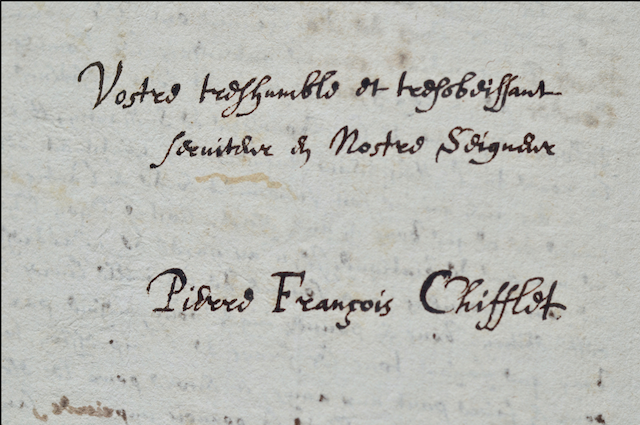 Vostre treshumble et tresobeissant
seruiteur en Nostre Seigneur
Pierre François Chifflet